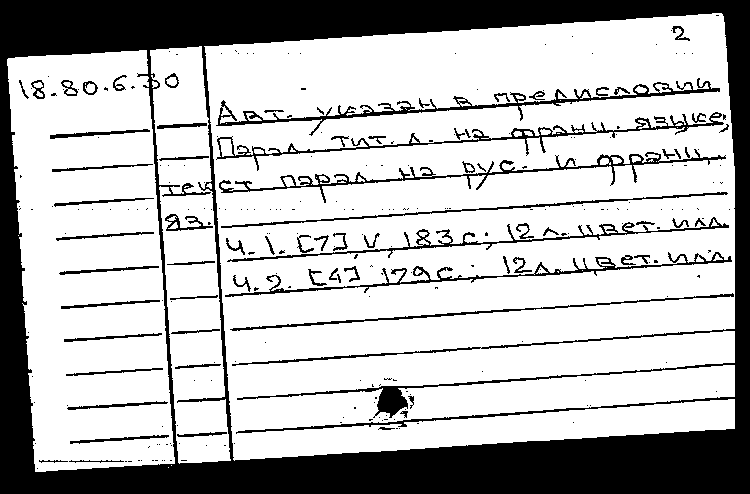 2
18.80.6.30
Авт. указан в предисловии
Парал. тит. л. на франц. языке;
текст парал. на рус. и франц.
яз.
Ч. 1. [7], V, 183 с.; 12 л. цвет. илл.
Ч. 2. [4], 179 с.; 12 л. цвет. илл.